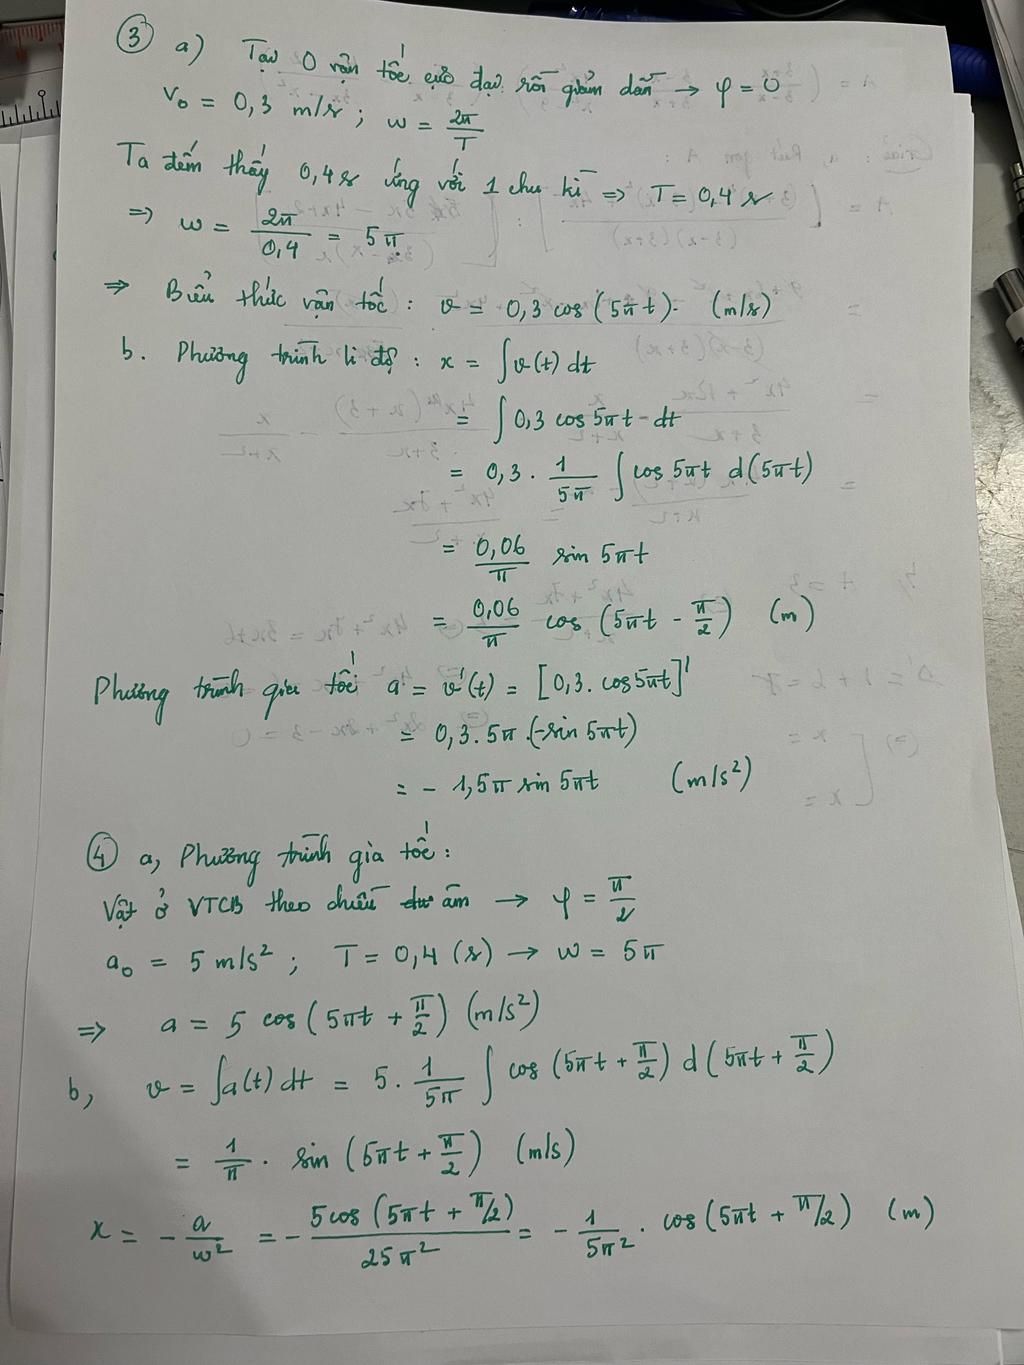 ③ a) Tại O vận tốc cực đại rồi giảm dần → φ = 0
v₀ = 0,3 m/s ; w = 2π/T
Ta đếm thấy 0,4s ứng với 1 chu kì => T = 0,4 s
=> w = 2π/0,4 = 5π
=> Biểu thức vận tốc : v = 0,3 cos (5πt). (m/s)
b. Phương trình li độ : x = ∫v(t) dt
= ∫ 0,3 cos 5πt . dt
= 0,3 . 1/5π ∫ cos 5πt d(5πt)
= 0,06/π sin 5πt
= 0,06/π cos (5πt - π/2) (m)
Phương trình gia tốc a = v'(t) = [0,3. cos5πt]'
= 0,3. 5π .(-sin 5πt)
= - 1,5π sin 5πt (m/s²)
④ a, Phương trình gia tốc :
Vật ở VTCB theo chiều âm → φ = π/2
a₀ = 5 m/s² ; T = 0,4 (s) → w = 5π
=> a = 5 cos (5πt + π/2) (m/s²)
b, v = ∫a(t) dt = 5. 1/5π ∫ cos (5πt + π/2) d (5πt + π/2)
= 1/π . sin (5πt + π/2) (m/s)
x = - a/w² = - 5 cos (5πt + π/2)/25π² = - 1/5π² . cos (5πt + π/2) (m)